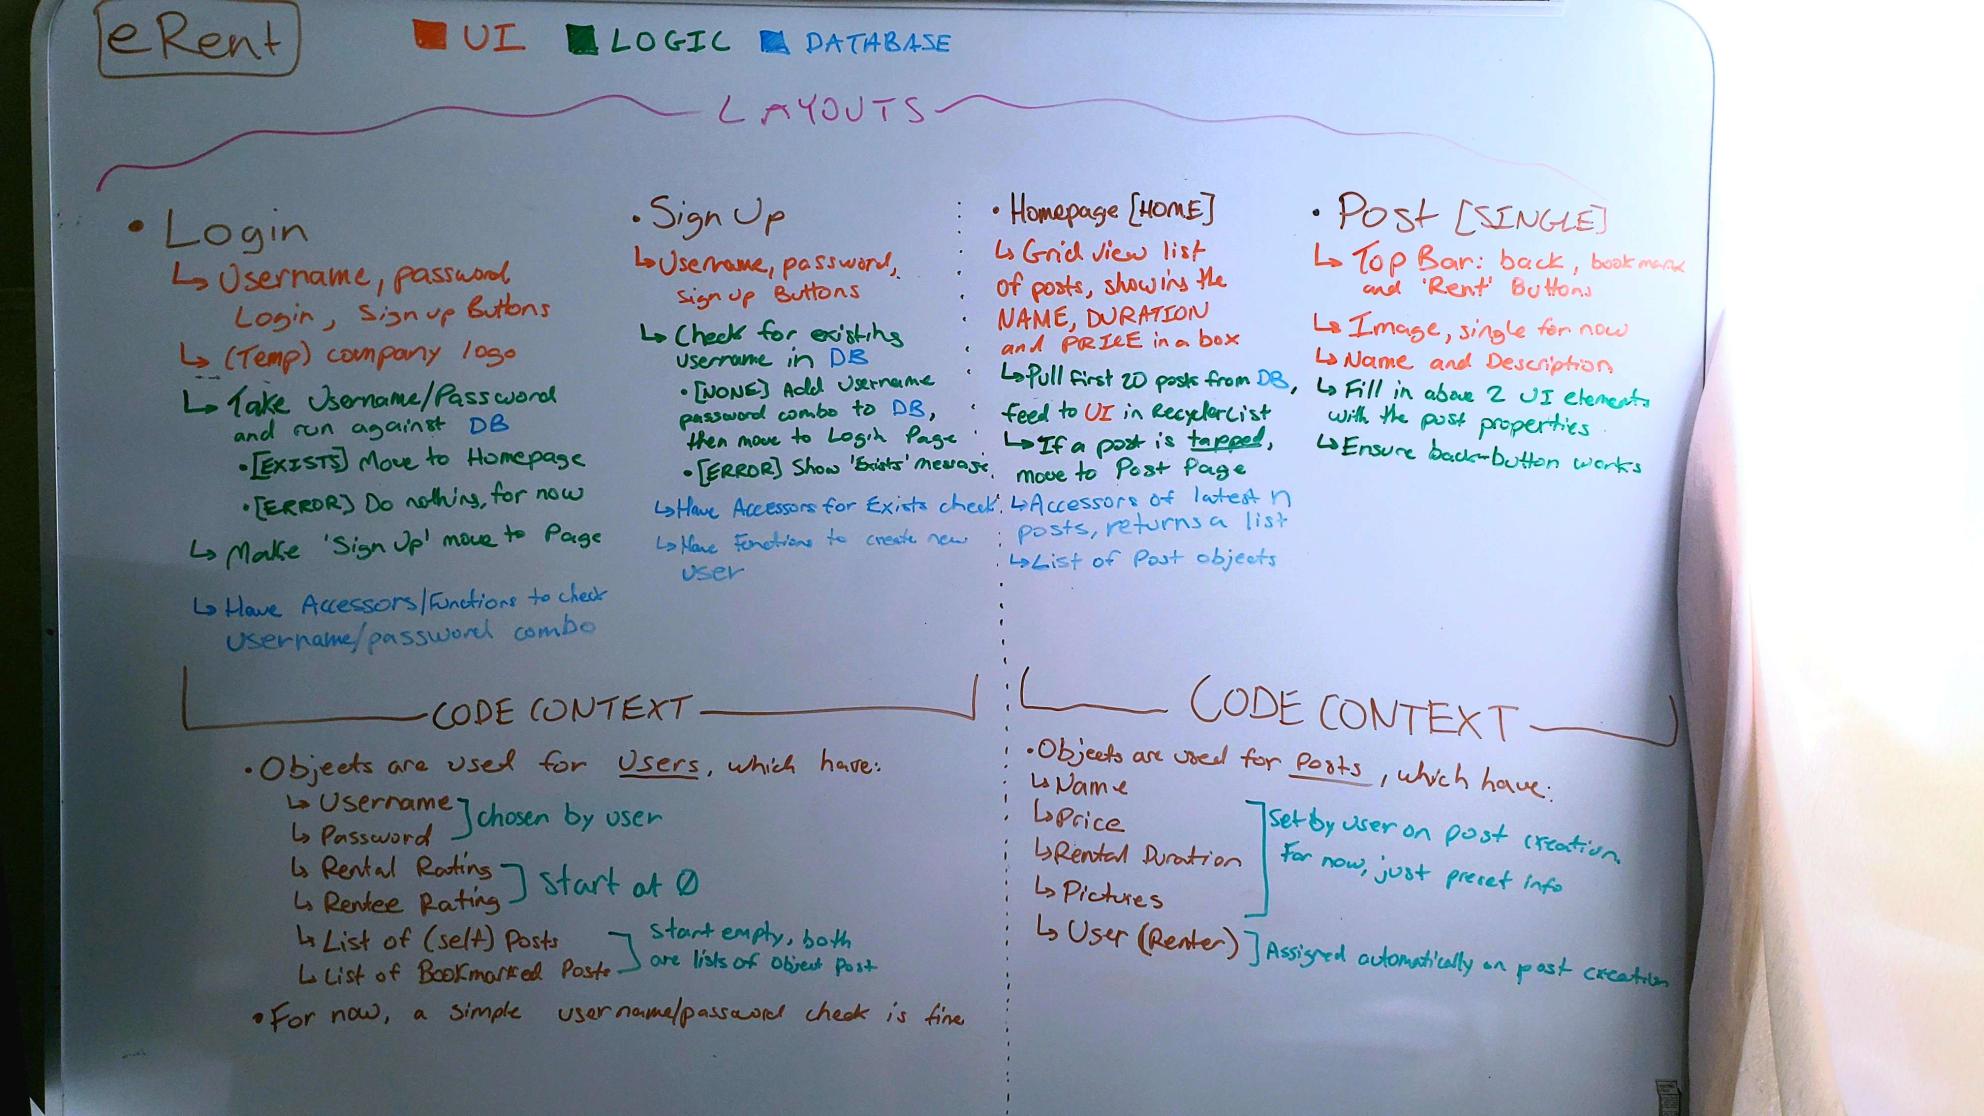 eRent
UI LOGIC DATABASE
LAYOUTS
• Login
↳ Username, password
Login, Sign up Buttons
↳ (Temp) company logo
↳ Take Username/Password
and run against DB
• [EXISTS] Move to Homepage
• [ERROR] Do nothing, for now
↳ Make 'Sign Up' move to Page
↳ Have Accessors/Functions to check
username/password combo
• Sign Up
↳ Username, password,
sign up Buttons
↳ Check for existing
username in DB
• [NONE] Add Username
password combo to DB,
then move to Login Page
• [ERROR] Show 'Exists' message
↳ Have Accessors for Exists check
↳ Have Functions to create new
user
• Homepage [HOME]
↳ Grid view list
of posts, showing the
NAME, DURATION
and PRICE in a box
↳ Pull first 20 posts from DB,
feed to UI in RecyclerList
↳ If a post is tapped,
move to Post Page
↳ Accessors of latest n
posts, returns a list
↳ List of Post objects
• Post [SINGLE]
↳ Top Bar: back, bookmark
and 'Rent' Buttons
↳ Image, single for now
↳ Name and Description
↳ Fill in above 2 UI elements
with the post properties
↳ Ensure back-button works
CODE CONTEXT
• Objects are used for Users, which have:
↳ Username
↳ Password
] chosen by user
↳ Rental Rating
↳ Rentee Rating
] Start at 0
↳ List of (self) Posts
↳ List of Bookmarked Posts
] Start empty, both
are lists of object Post
• For now, a simple username/password check is fine
CODE CONTEXT
• Objects are used for Posts, which have:
↳ Name
↳ Price
↳ Rental Duration
↳ Pictures
] Set by user on post creation.
For now, just preset info
↳ User (Renter) ] Assigned automatically on post creation